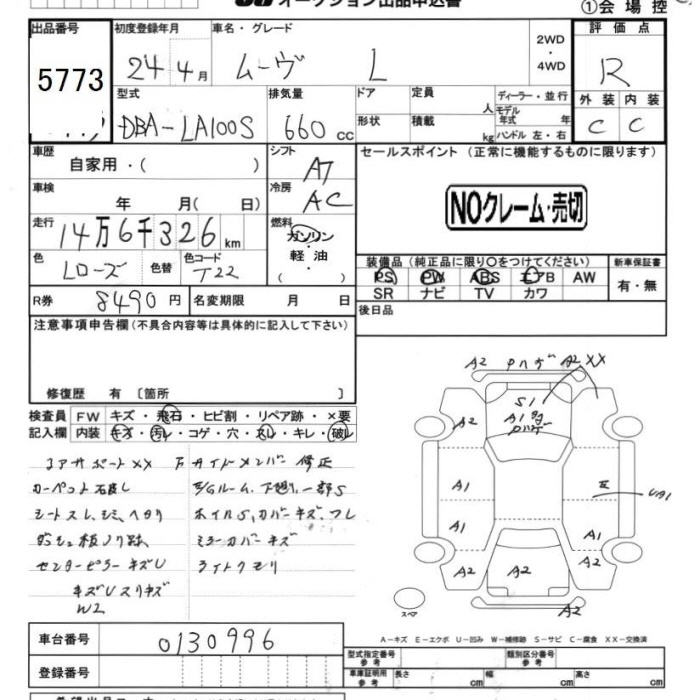 オークション出品申込書
①会場控
出品番号 初度登録年月 車名・グレード 評価点
5773 24年4月 ムーヴ L 2WD・4WD R
型式 排気量 ドア 定員 人 ディーラー・並行 外装 内装
DBA-LA100S 660cc 形状 積載 kg モデル年式 年 C C
ハンドル 左・右
車歴 自家用・( ) シフト AT セールスポイント(正常に機能するものに限ります)
車検 年 月( 日) 冷房 AC NOクレーム・売切
走行 14万6千326km 燃料 ガソリン・軽油・( )
装備品(純正品に限り○をつけてください) 新車保証書
色 Lローズ 色替 色コード T22 PS PW ABS エアB AW 有・無
SR ナビ TV カワ
R券 8490円 名変期限 月 日 後日品
注意事項申告欄(不具合内容等は具体的に記入して下さい)
修復歴 有〔箇所 〕
検査員 FW キズ・飛石・ヒビ割・リペア跡・×要
記入欄 内装 キズ・汚レ・コゲ・穴・スレ・キレ・破レ
コアサポートXX サイドメンバー修正
カーペット 下廻り一部S
シートスレ、シミ、ヘタリ ホイルS,カバーキズ.フレ
ダッシュ板ノリ跡 ミラーカバーキズ
センターピラーキズU ライトクモリ
キズUスリキズ
W2
A2 A2 XX
S1
A1
A2
A1 UA1
A1 A1
A2 A2 A2
A2
スペア
車台番号 0130996
A-キズ E-エクボ U-凹み W-補修跡 S-サビ C-腐食 XX-交換済
登録番号 型式指定番号 参考 類別区分番号 参考
車庫証明用 参考 長さ cm 幅 cm 高さ cm